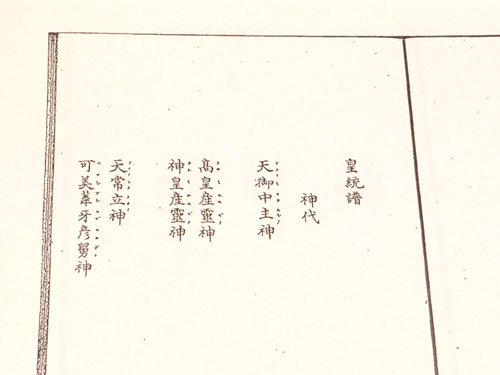 皇統譜
神代
天御中主神
高皇産靈神
神皇産靈神
天常立神
可美葦牙彦舅神